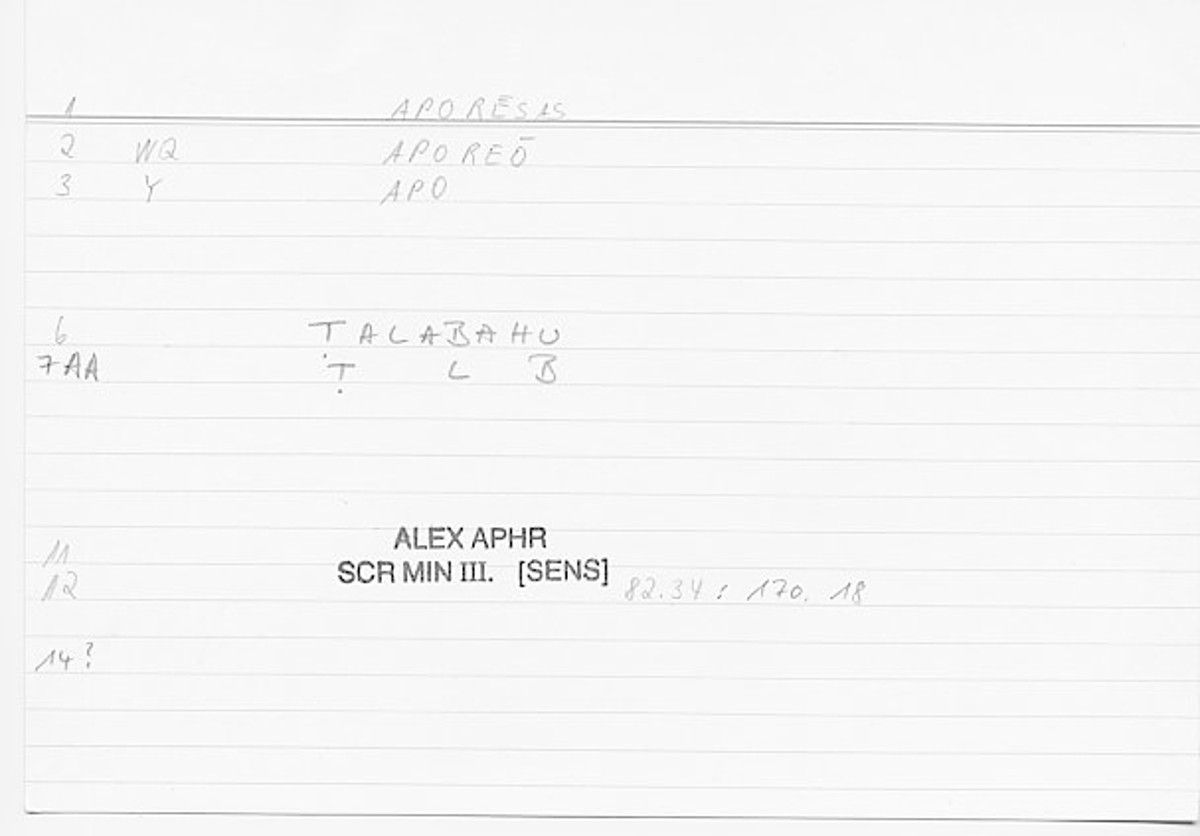 1 APORĒSAS
2 WQ APOREŌ
3 Y APO
6 ṬALABAHU
7AA Ṭ L B
11 ALEX APHR
12 SCR MIN III. [SENS] 82.34 : 170. 18
14?